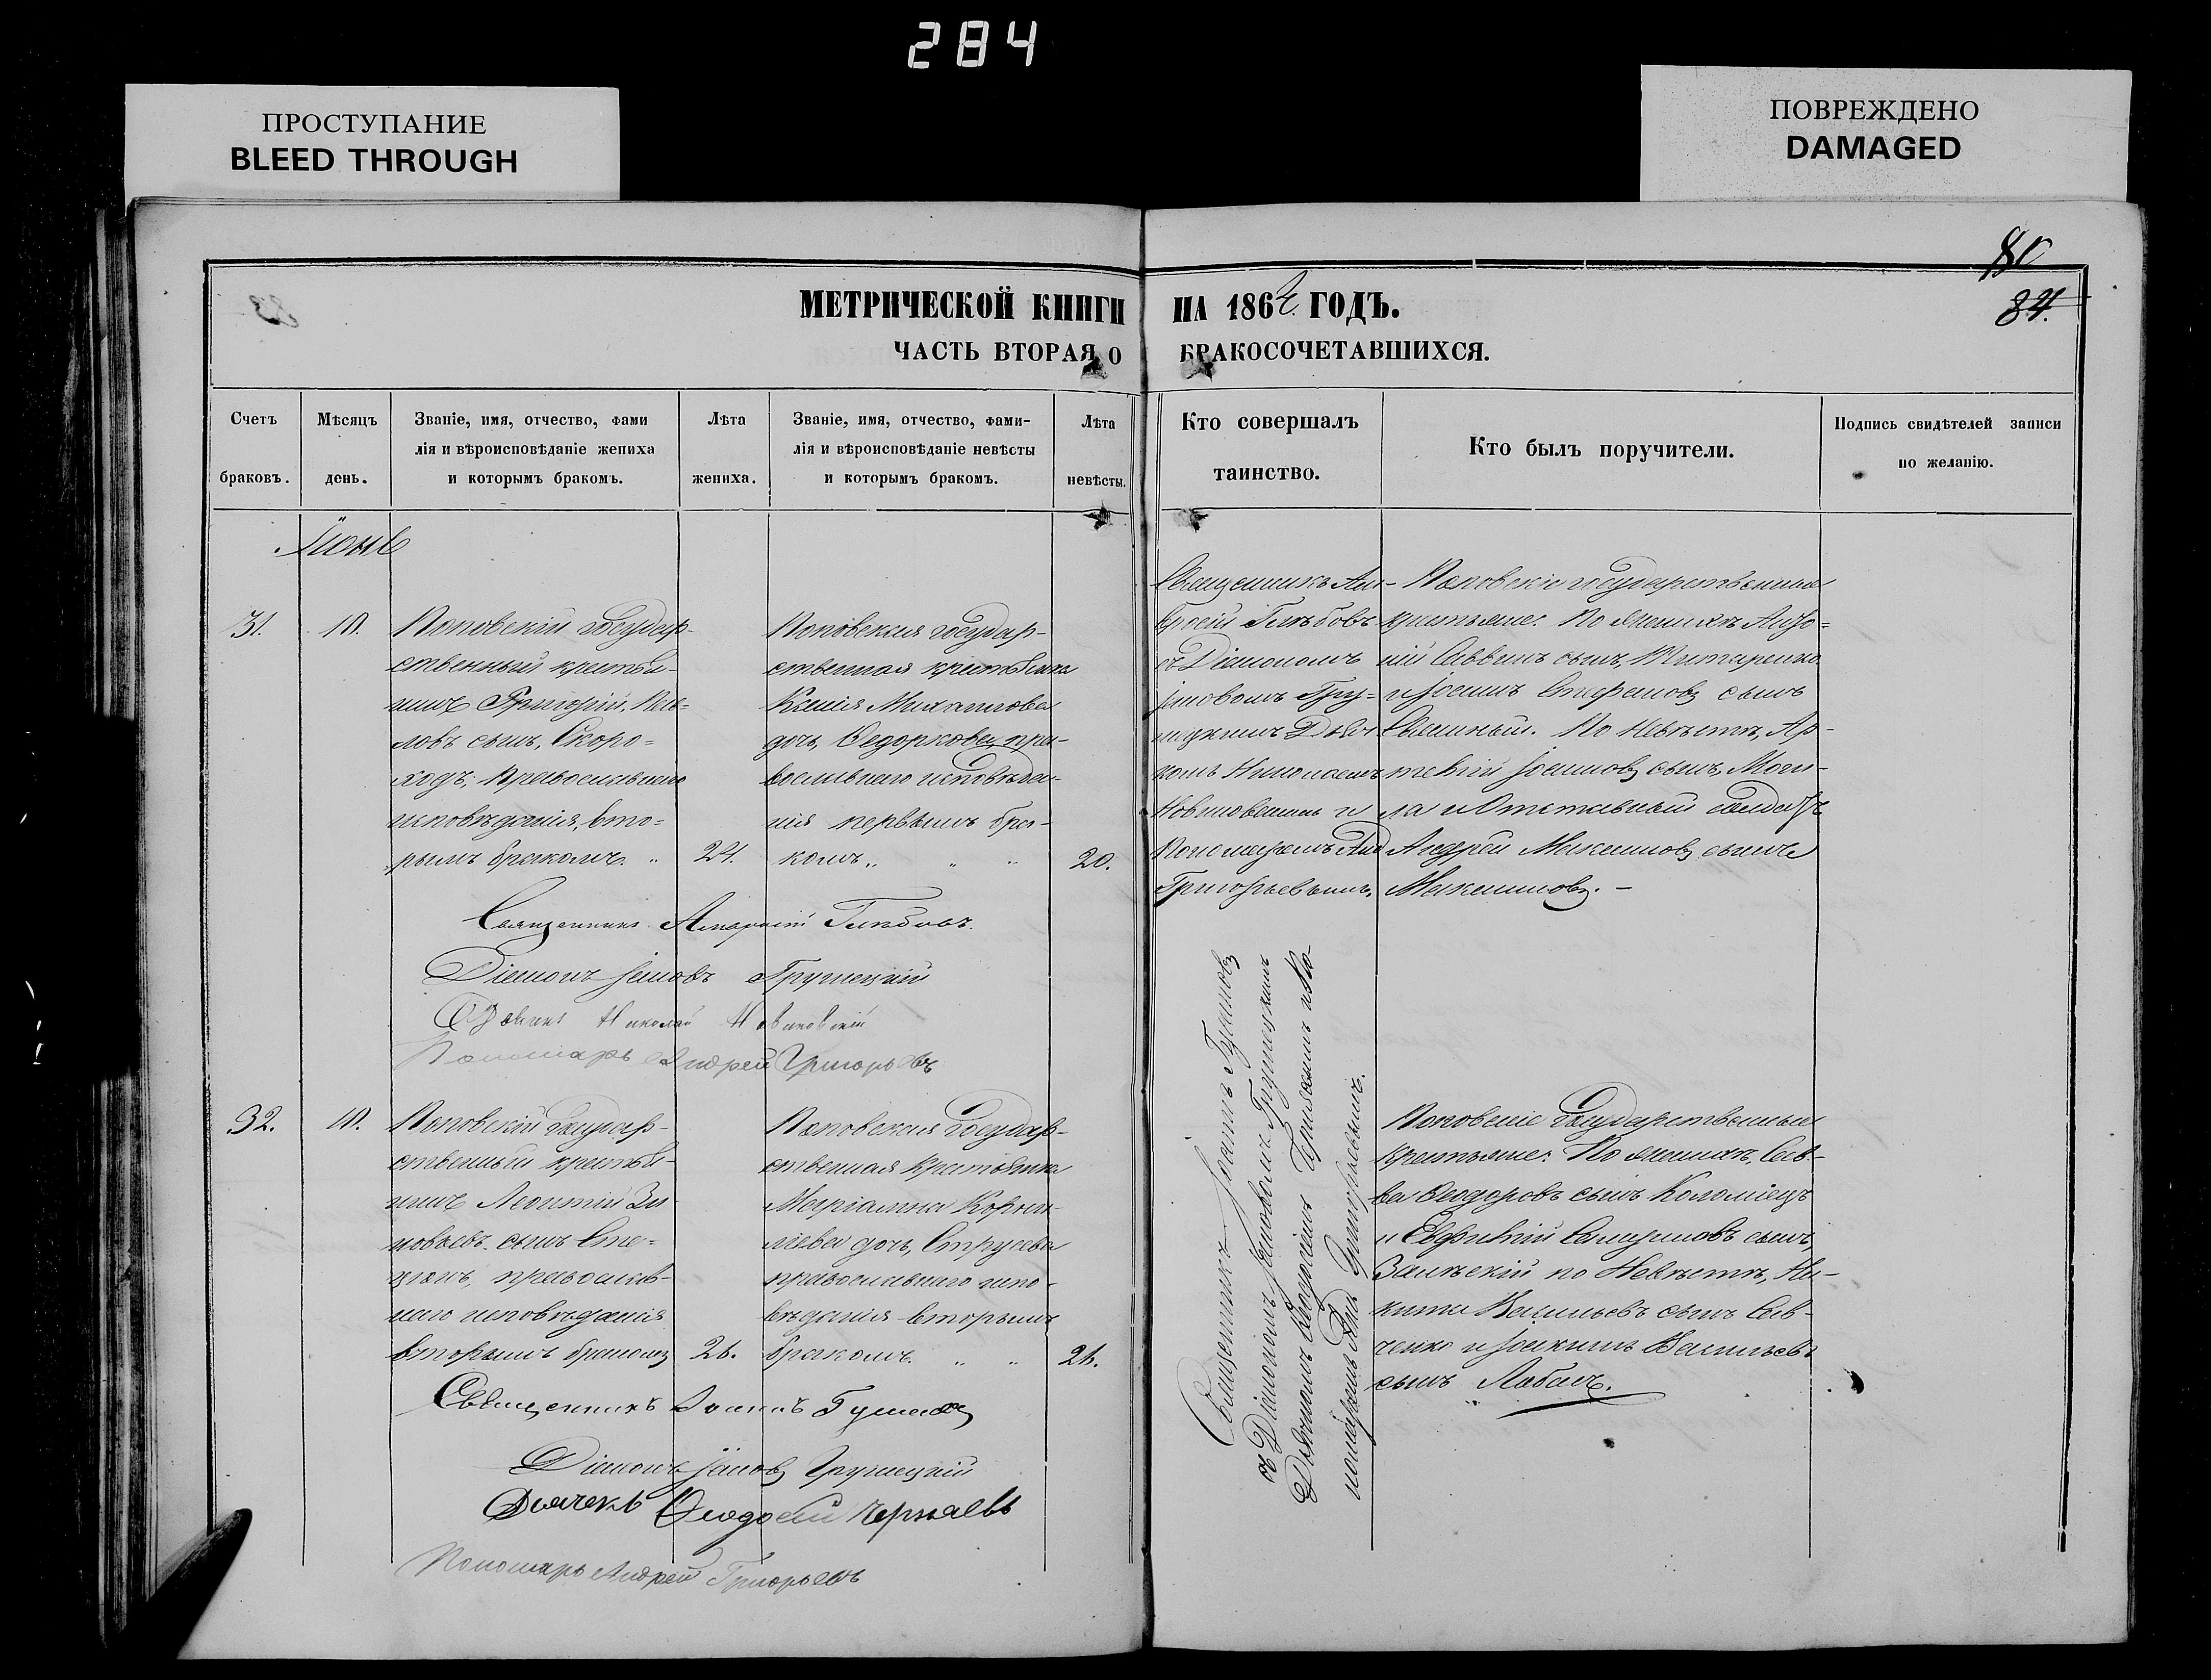 284
ПРОСТУПАНИЕ
BLEED THROUGH
ПОВРЕЖДЕНО
DAMAGED
84.
МЕТРИЧЕСКОЙ КНИГИ НА 1862 ГОДЪ.
ЧАСТЬ ВТОРАЯ О БРАКОСОЧЕТАВШИХСЯ.
Счетъ браковъ.
Мѣсяцъ день.
Званіе, имя, отчество, фами
лія и вѣроисповѣданіе жениха
и которымъ бракомъ.
Лѣта жениха.
Званіе, имя, отчество, фами-
лія и вѣроисповѣданіе невѣсты
и которымъ бракомъ.
Лѣта невѣсты.
Кто совершалъ
таинство.
Кто былъ поручители.
Подпись свидѣтелей записи
по желанію.
31.
10.
Поповскій государ-
ственный крестья-
нинъ Григорій Пав-
ловъ сынъ, Скоро=
ходъ, православнаго
исповѣданія, вто=
рымъ бракомъ. „
24.
Поповская государ-
ственная крестьянка
Ксенія Михаилова
дочь, Ѳедоркова, пра-
вославнаго исповѣда-
нія первымъ бра-
комъ „ „ „
20.
Священникъ Глѣбовъ
съ Діакономъ
Іаковомъ Гру=
шецкимъ Дьяч
комъ Николаемъ
Новиковскимъ и
Пономаремъ Анд
Григорьевымъ.
Поповскіе государственные
крестьяне: По женихѣ
Саввинъ сынъ, Титаренко
и Іоаннъ Стефановъ сынъ
По невѣстѣ, Ар-
темій Іоанновъ сынъ, Моги-
ла и Отставный солдатъ
Андрей Максимовъ сынъ
Максимовъ. –
Священникъ Глѣбовъ.
Діаконъ Іаковъ Грушецкій
Дьячекъ Николай Новиковскій
Пономарь Андрей Григорьевъ
32.
10.
Поповскій Государ-
ственный крестья-
нинъ Леонтій Зи
новьевъ сынъ Сте=
православ-
наго исповѣданія
вторымъ бракомъ
26.
Поповская Государ-
ственная крестьянка
Маріанна Корни-
ліева дочь, Струсева
православнаго испо-
вѣданія вторымъ
бракомъ. „ „
26.
Священникъ Іоаннъ
съ Діакономъ Іаковомъ Грушецкимъ
Дьячкомъ Ѳеодосіемъ и По-
номаремъ Анд Григорьевымъ.
Поповскіе Государственные
крестьяне: По женихѣ, Сав-
ва Ѳеодоровъ сынъ Коломіецъ
и Евфимій сынъ,
Залѣскій по Невѣстѣ, Ни-
кита Васильевъ сынъ Сав-
ченко и Іоакимъ Васильевъ
сынъ Лабачъ.
Священникъ Іоаннъ
Діаконъ Іаковъ Грушецкій
Дьячекъ Ѳеодосій Черняевъ
Пономарь Андрей Григорьевъ